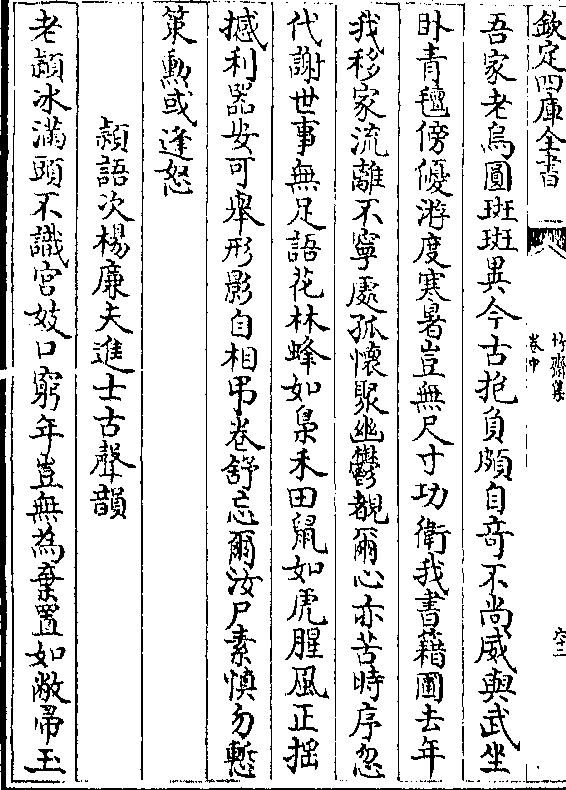 欽定四庫全書
竹齋集
卷中
六十三
吾家老烏圓斑斑異今古抱負頗自竒不尚威與武坐
卧青氊傍優游度寒暑豈無尺寸功衛我書籍圃去年
我移家流離不寧處孤懷聚幽鬱覩爾心亦苦時序忽
代謝世事無足語花林蜂如梟禾田䑕如虎腥風正摇
撼利器安可舉形影自相弔卷舒忘爾汝尸素慎勿慙
策勲或逢怒
頮語次楊廉夫進士古聲韻
老頮冰滿頭不識宫妓口窮年豈無為棄置如敝帚玉